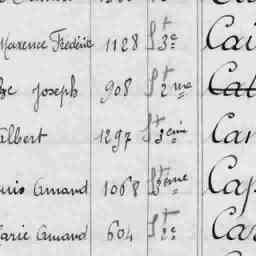 Maxence Frédéric 1128 St 3e Cai
Joseph 908 St 2me Cat
Albert 1297 St 3eme Can
Amand 1068 St 3eme Cap
Marie Amand 604 St 2e Cas